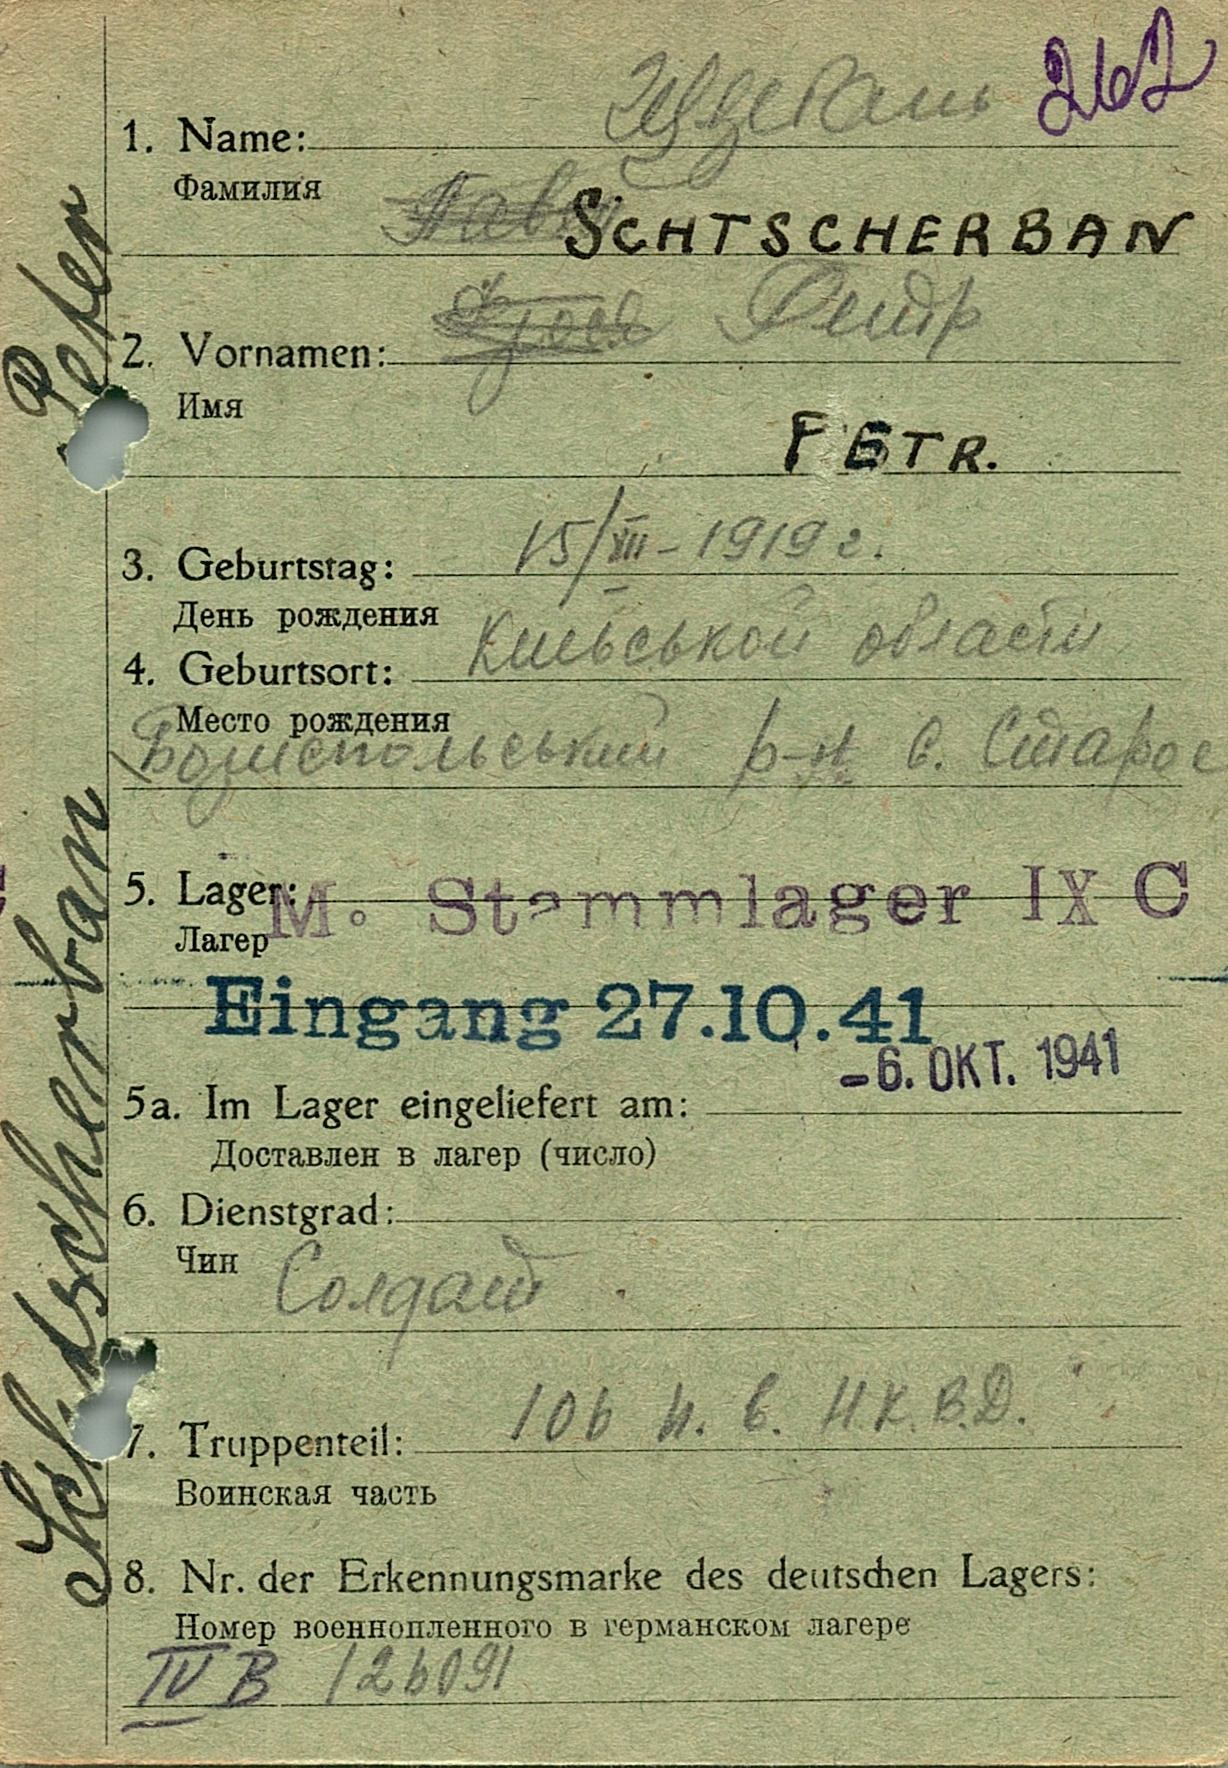 262
1. Name:
Фамилия
SCHTSCHERBAN
2. Vornamen: Петр
Имя
PETR.
3. Geburtstag: 15/XII - 1919 г.
День рождения
4. Geburtsort: Киевськой области
Место рождения
р-н с. Старое
5. Lager: M. Stammlager IX C
Лагер
Eingang 27.10.41
-6. OKT. 1941
5a. Im Lager eingeliefert am:
Доставлен в лагер (число)
6. Dienstgrad:
Чин Солдат
7. Truppenteil: 106 п. в. Н.К.В.Д.
Воинская часть
8. Nr. der Erkennungsmarke des deutschen Lagers:
Номер военнопленного в германском лагере
IV B 126091
Schtscherban Peter